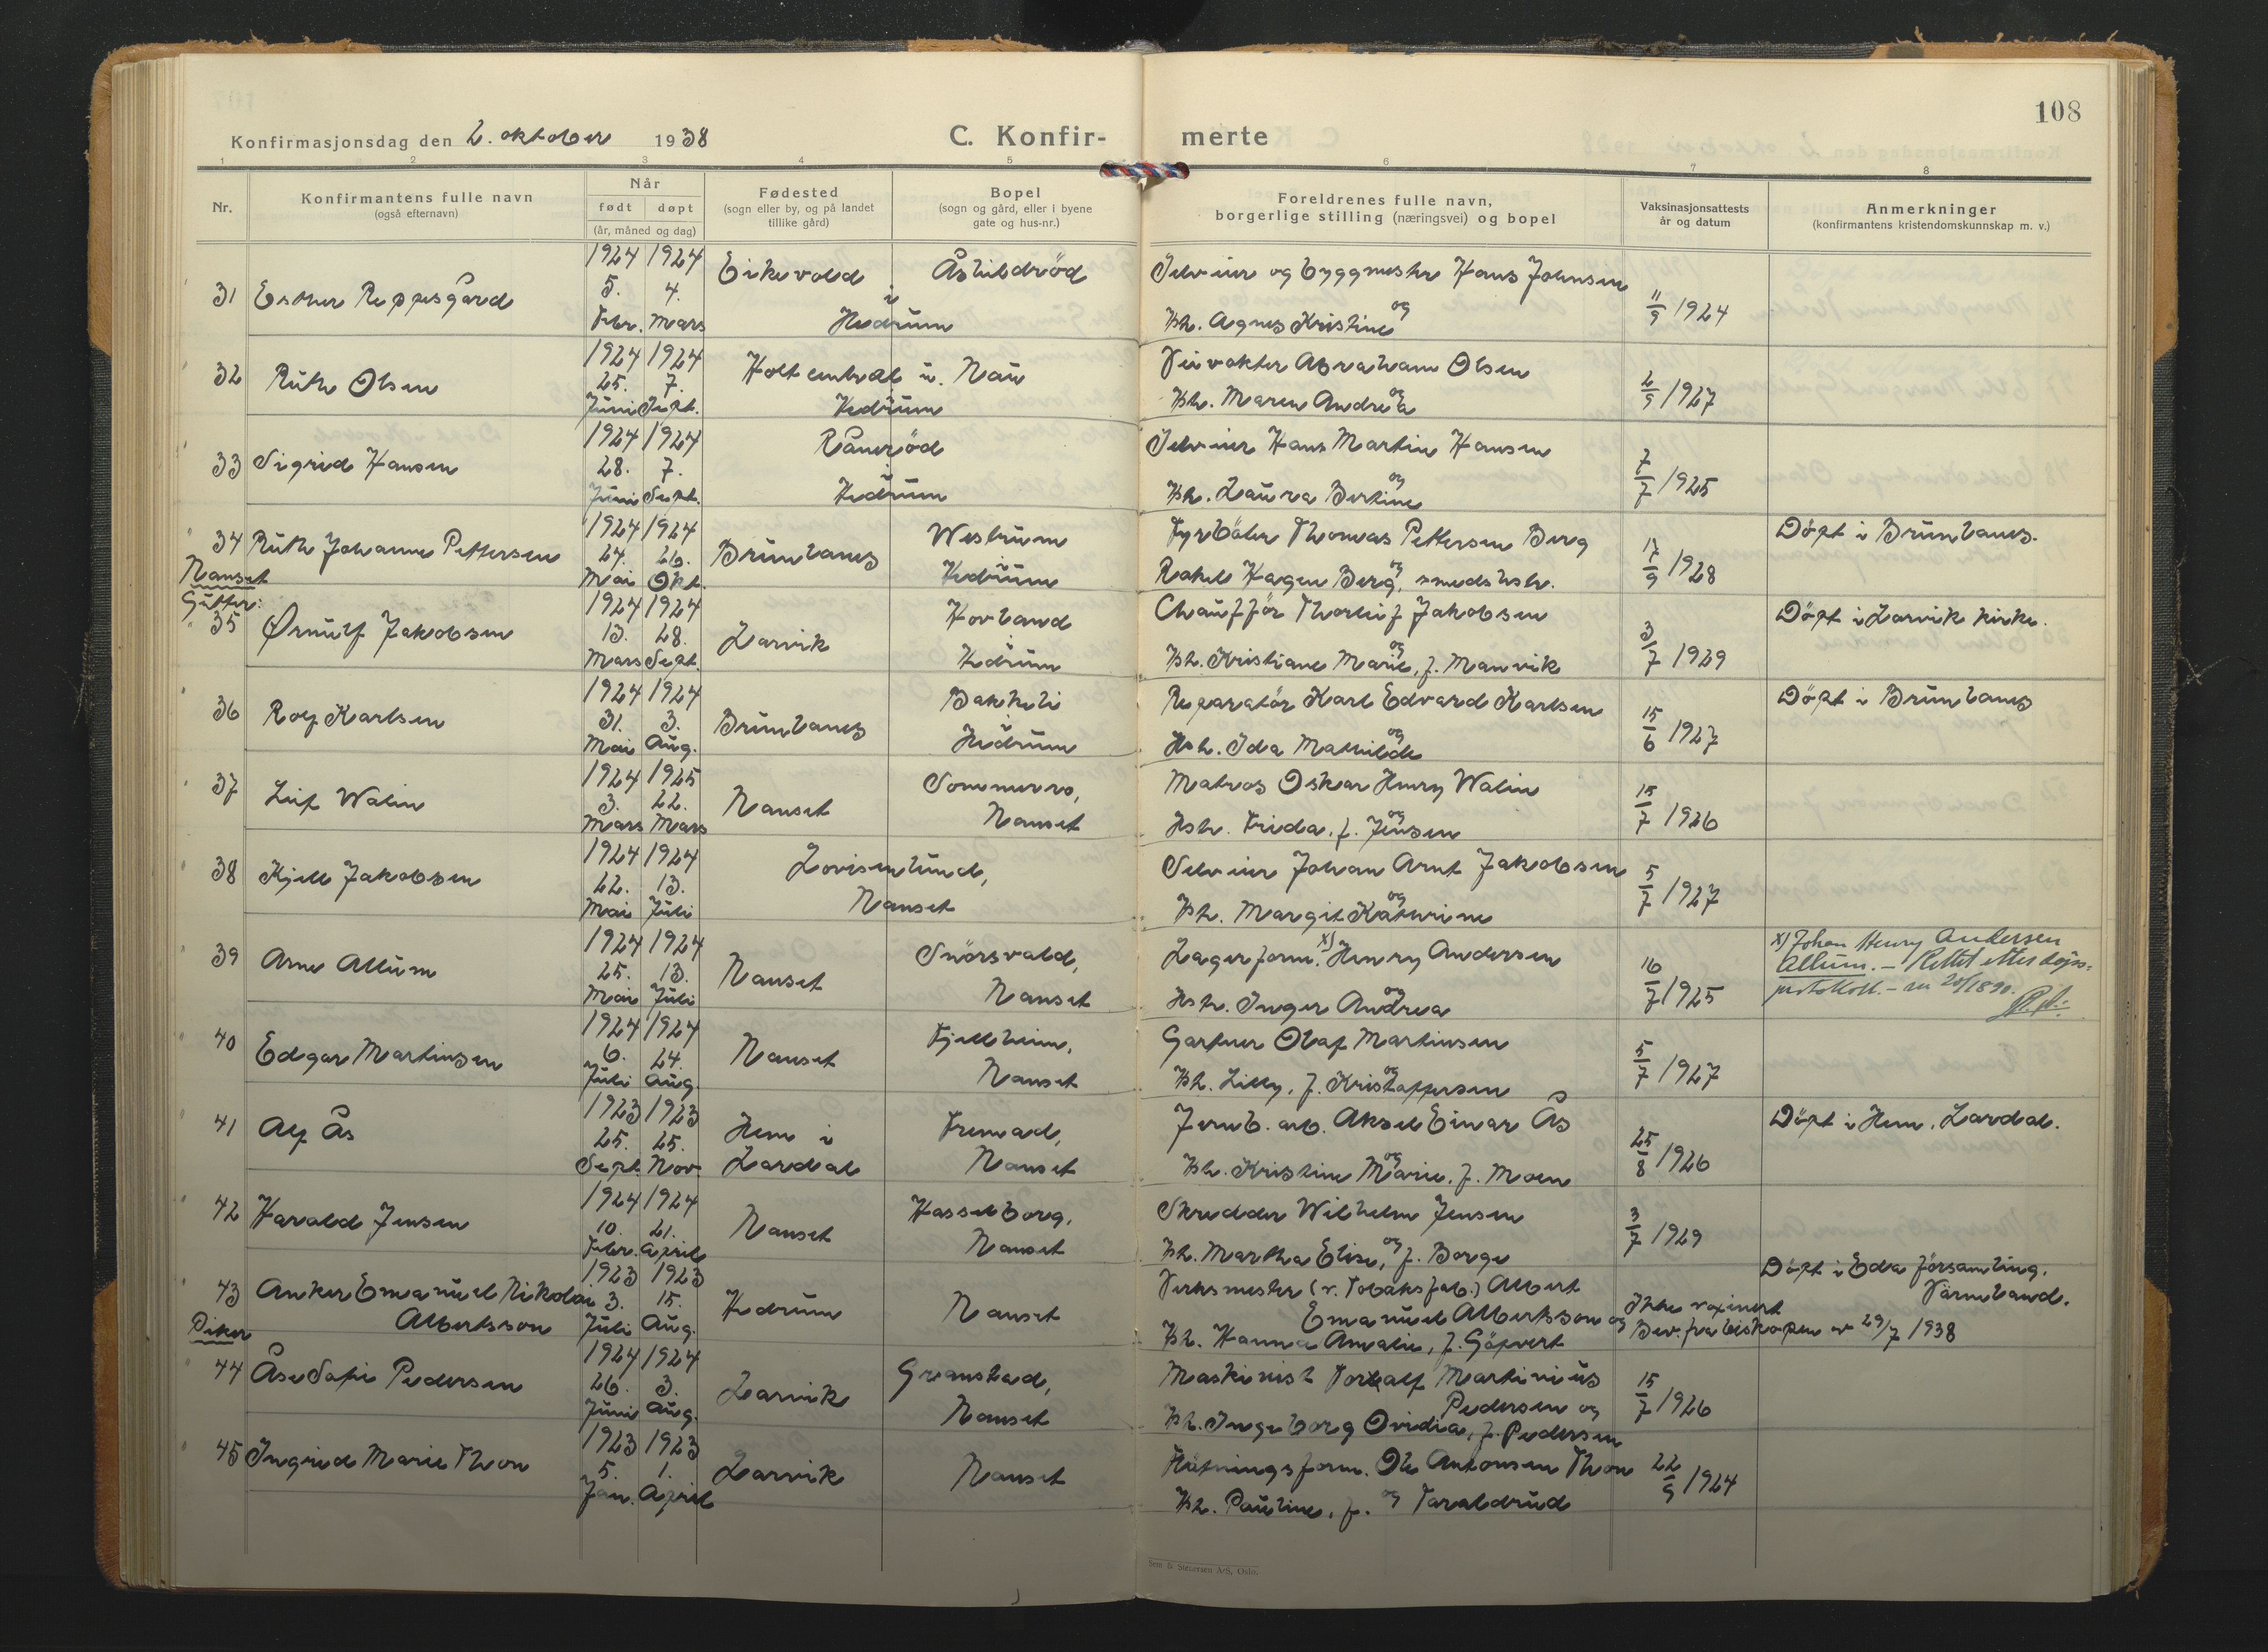 108
Konfirmasjonsdag den 2. oktober 1938
C. Konfir-
merte
1 2 3 4 5 6 7 8
Nr.
Konfirmantens fulle navn
(også efternavn)
Når
født døpt
(år, måned og dag)
Fødested
(sogn eller by, og på landet
tillike gård)
Bopel
(sogn og gård, eller i byene
gate og hus-nr.)
Foreldrenes fulle navn,
borgerlige stilling (næringsvei) og bopel
Vaksinasjonsattests
år og datum
Anmerkninger
(konfirmantens kristendomskunnskap m. v.)
31 Esther Reppesgård
1924 5. Febr.
1924 4. Mars
Eikevold Åshildröd
i
Hedrum
Selveier og byggmester Hans Johnsen
og
Hh. Agnes Kristine
11/9 1924
32 Ruth Olsen
1924 25. Juni
1924 7. Sept.
Holt u. Nau
i
Hedrum
Veivokter Abraham Olsen
og
Hh. Maren Andrea
2/9 1927
33 Sigrid Hansen
1924 28. Juni
1924 7. Sept.
Råneröd
i
Hedrum
Selveier Hans Martin Hansen
og
Hh. Laura Bertine
7/7 1925
34 Ruth Johanne Pettersen
1924 24. Mai
1924 26. Okt.
Brunlanes
Westrum
i
Hedrum
Fyrböter Thomas Pettersen Berg
og
Rakel Hagen Berg, smedshsh.
17/9 1928
Döpt i Brunlanes.
Nanset
Gutter:
35 Ørnulf Jakobsen
1924 13. Mars
1924 28. Sept.
Larvik
Hovland
i
Hedrum
Chaufför Thorleif Jakobsen
og
Hh. Kristiane Marie, f. Manvik
3/7 1929
Döpt i Larvik kirke.
36 Rolf Karlsen
1924 31. Mai
1924 3. Aug.
Brunlanes
Bakkeli
i
Hedrum
Reparatör Karl Edvard Karlsen
og
Hsh. Ida Mathilde
15/6 1927
Döpt i Brunlanes
37 Leif Walin
1924 3. Mars
1925 22. Mars
Nanset
Sommerro,
Nanset
Matros Oskar Henry Walin
og
Hsh. Frida, f. Jensen
15/7 1926
38 Kjell Jakobsen
1924 22. Mai
1924 13. Juli
Lovisenlund,
Nanset
Selveier Johan Arnt Jakobsen
og
Hh. Margit Katherine
5/7 1927
39 Arne Allum
1924 25. Mai
1924 13. Juli
Nanset
Snörsvald,
Nanset
Lagerform. x) Henry Andersen
og
Hsh. Inger Andrea
16/7 1925
x) Johan Henry Andersen
Allum. – Rettet etter døps-
protokoll. –
40 Edgar Martinsen
1924 6. Juli
1924 24. Aug.
Nanset
Fjellheim,
Nanset
Gartner Olaf Martinsen
og
Hh. Lilly, f. Kristoffersen
5/7 1927
41 Alf Ås
1923 25. Sept.
1923 25. Nov.
Hem i
Lardal
Fremad,
Nanset
Jernb. arb. Aksel Einar Ås
og
Hh. Kristine Marie, f. Moen
25/8 1926
Döpt i Hem, Lardal.
42 Harald Jensen
1924 10. Febr.
1924 21. April
Nanset
Hasselborg,
Nanset
Skredder Wilhelm Jensen
og
Hh. Martha Elise, f. Borge
3/7 1929
43 Anker Emanuel Nikolai
Albertsson
1923 3. Juli
1923 15. Aug.
Hedrum
Nanset
Verksmester (v. Tobaksfab.) Albert
Emanuel Albertsson og
Hh. Hanna Amalie, f. Göpvert
Ikke vaxinert
Bev. fra biskopen av 29/7 1938
Döpt i Eda församling,
Värmland.
Piker
44 Åse Sofie Pedersen
1924 26. Juni
1924 3. Aug.
Larvik
Granstad,
Nanset
Maskinist Toralf Martinius
Pedersen og
Hh. Ingeborg Ovidia, f. Pedersen
15/7 1926
45 Ingrid Marie Thon
1923 5. Jan.
1923 1. April
Larvik
Nanset
Fløtningsform. Ole Antonsen Thon
og
Hh. Pauline, f. Taraldrud
22/9 1924
Sem & Stenersen A/S, Oslo.